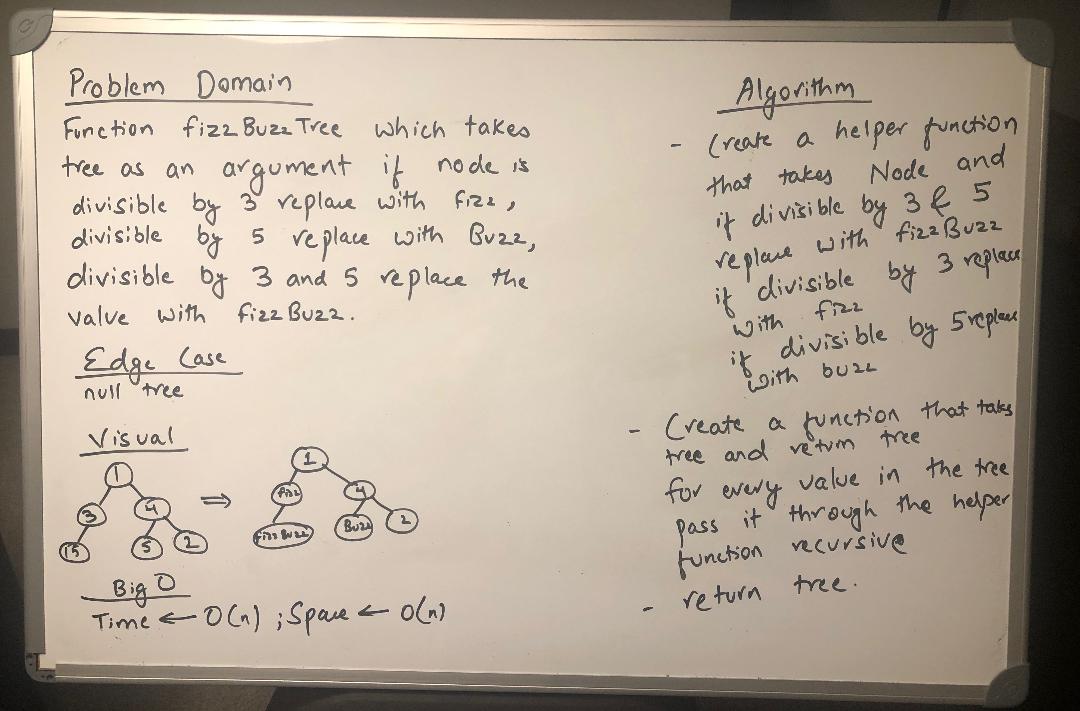 Problem Domain
Function fizzBuzzTree which takes
tree as an argument if node is
divisible by 3 replace with fizz,
divisible by 5 replace with Buzz,
divisible by 3 and 5 replace the
value with fizzBuzz.
Edge Case
null tree
Visual
1
3
4
15
5
2
⇒
1
fizz
4
fizzBuzz
Buzz
2
Big O
Time ← O(n) ; Space ← O(n)
Algorithm
- Create a helper function
that takes Node and
if divisible by 3 & 5
replace with fizzBuzz
if divisible by 3 replace
with fizz
if divisible by 5 replace
with buzz
- Create a function that takes
tree and return tree
for every value in the tree
pass it through the helper
function recursive
- return tree.